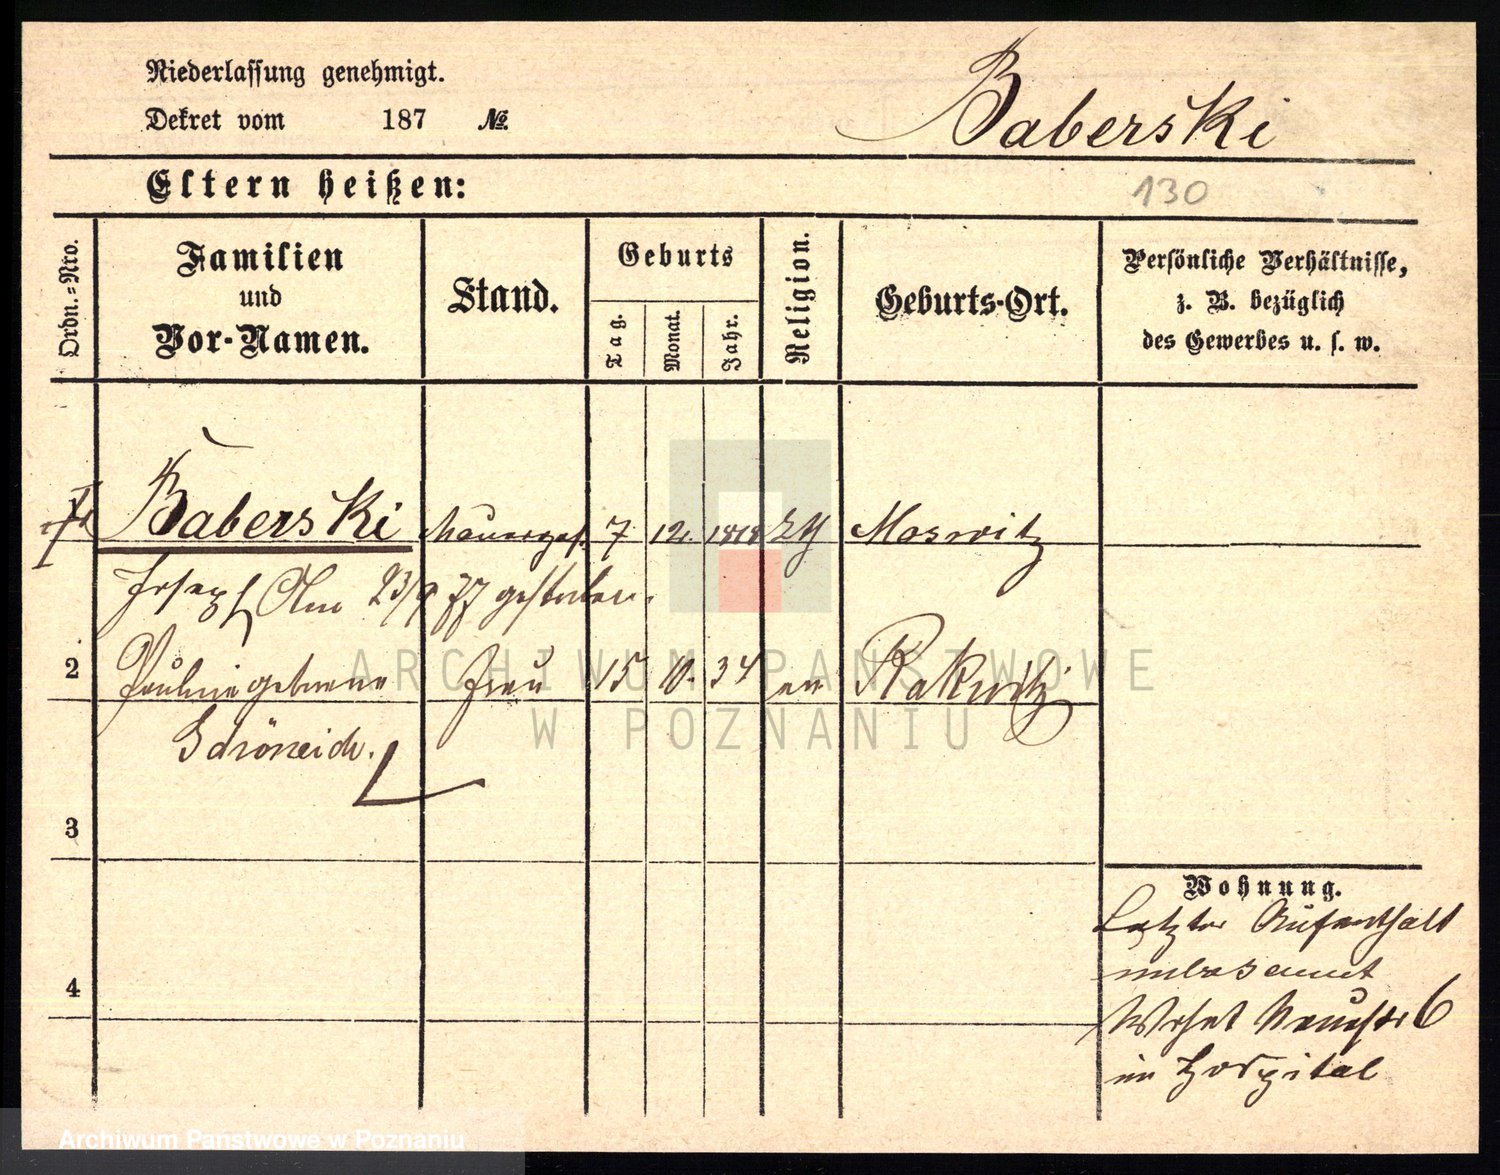 Niederlassung genehmigt.
Dekret vom 187 №
Baberski
Eltern heißen:
130
Ordn.-Nro.
Familien
und
Vor-Namen.
Stand.
Geburts
Tag.
Monat.
Jahr.
Religion.
Geburts-Ort.
Persönliche Verhältnisse,
z. B. bezüglich
des Gewerbes u. s. w.
Baberski Mauerges. 7 12. 1818
Joseph Am 23/9 77 gestorben.
2 Pauline geborene Frau 15 10. 34 ev Rakwitz
Schöneich.
3
4
Wohnung.
Letzter Aufenthalt
unbekannt
Wohnt Neuestr 6
im Hospital
ARCHIWUM PAŃSTWOWE
W POZNANIU
Archiwum Państwowe w Poznaniu